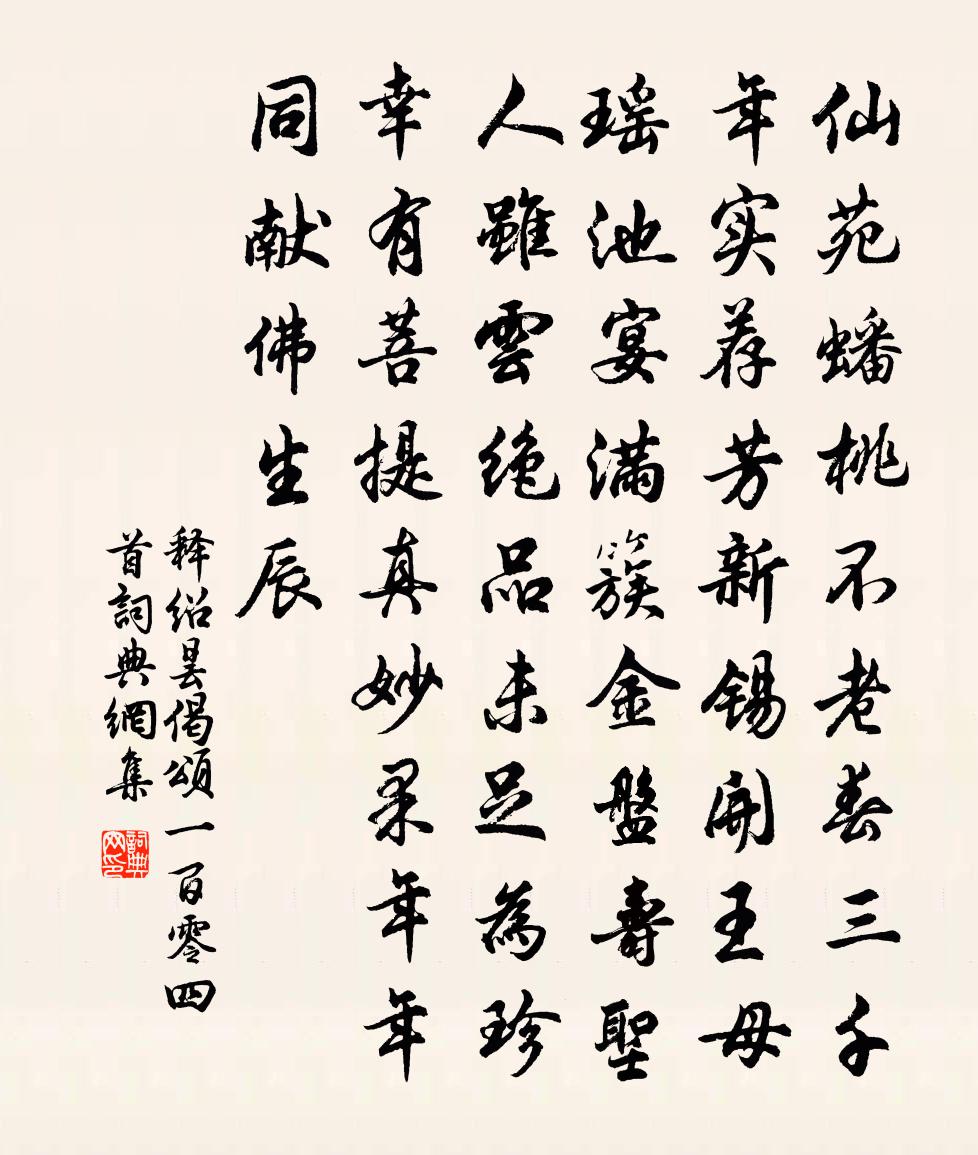 仙苑蟠桃不老春三千
年实荐芳新锡开王母
瑶池宴满簇金盤壽聖
人雖雲绝品未足為珍
幸有菩提真妙果年年
同献佛生辰
释绍昙偈頌一百零四
首詞典網集
詞典网印